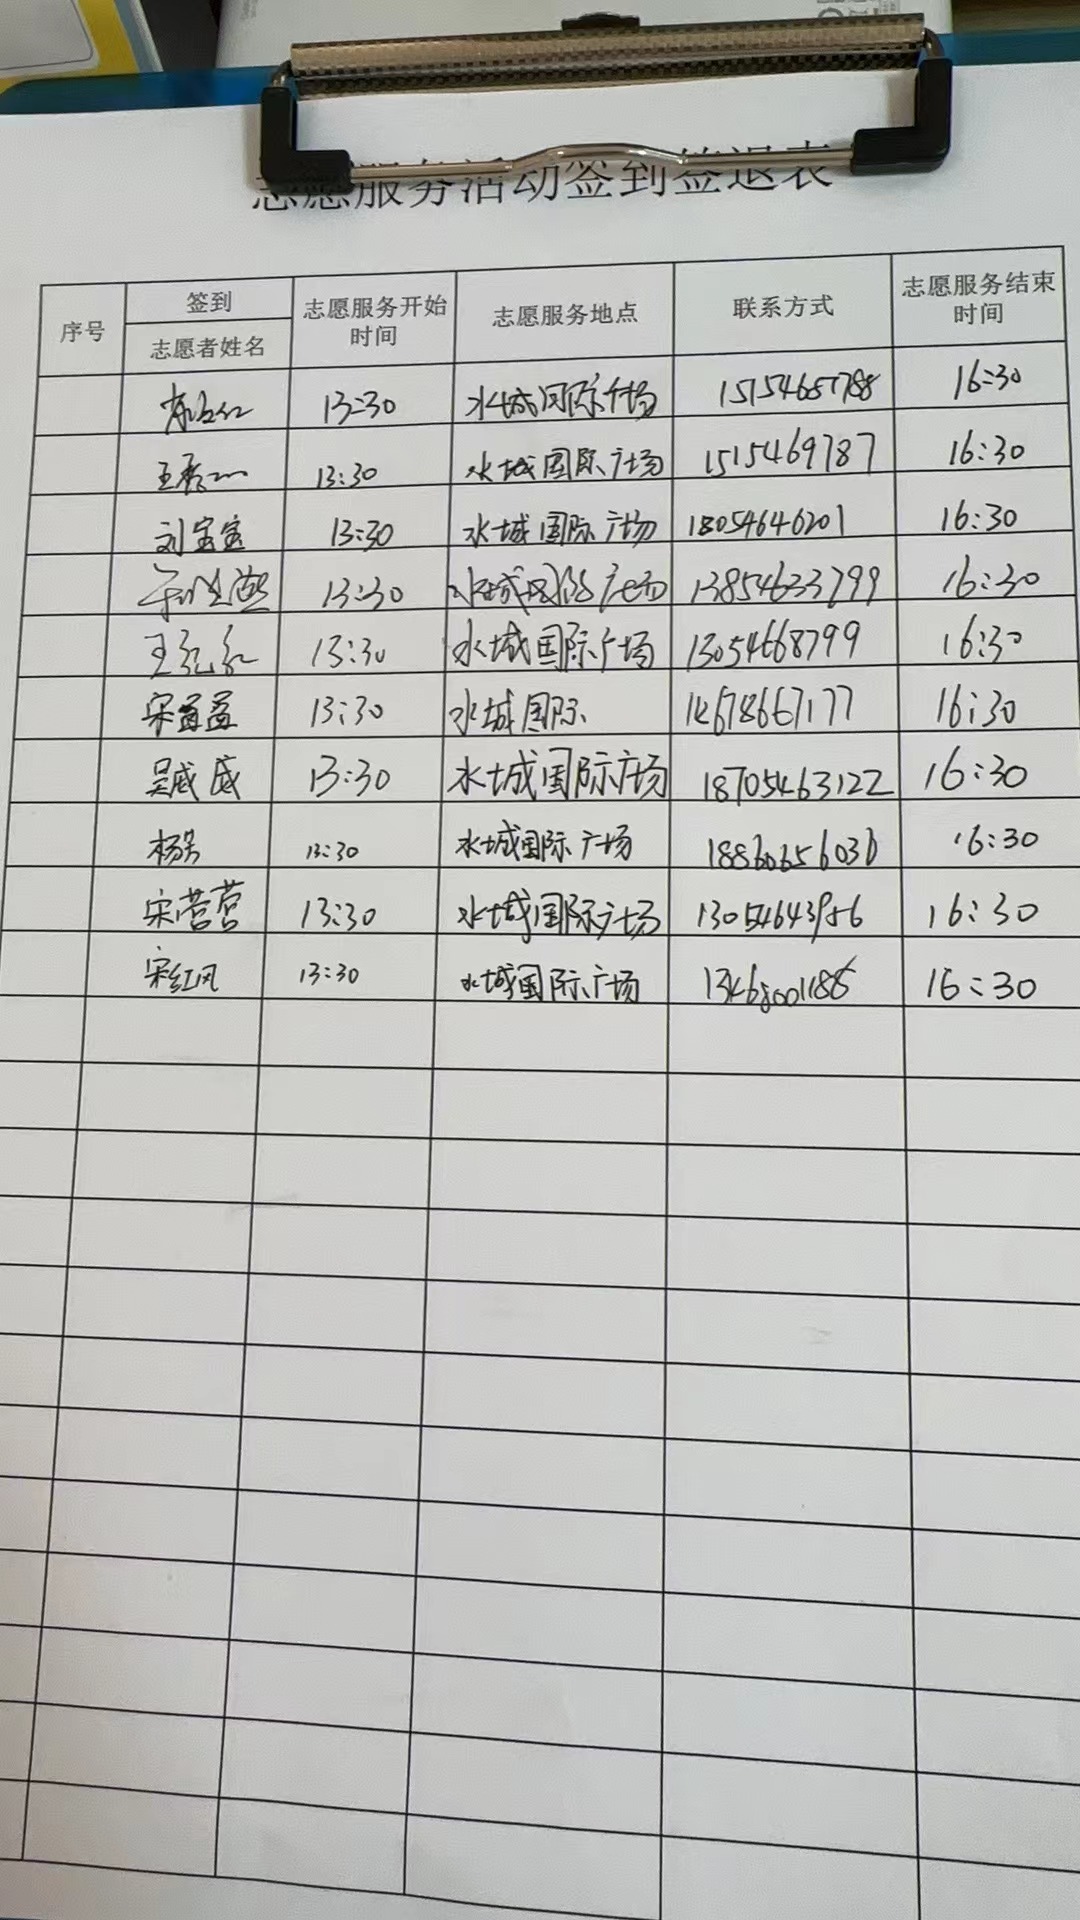 志愿服务活动签到签退表
序号 签到 志愿者姓名 志愿服务开始时间 志愿服务地点 联系方式 志愿服务结束时间
13:30 水城国际广场 16:30
13:30 水城国际广场 1515469787 16:30
刘宝宝 13:30 水城国际广场 18054646201 16:30
13:30 水城国际广场 13854633799 16:30
王红红 13:30 水城国际广场 13054668799 16:30
宋盈盈 13:30 水城国际 16:30
吴威威 13:30 水城国际广场 18705463122 16:30
13:30 水城国际广场 16:30
宋营营 13:30 水城国际广场 13054643956 16:30
宋红凤 13:30 水城国际广场 16:30